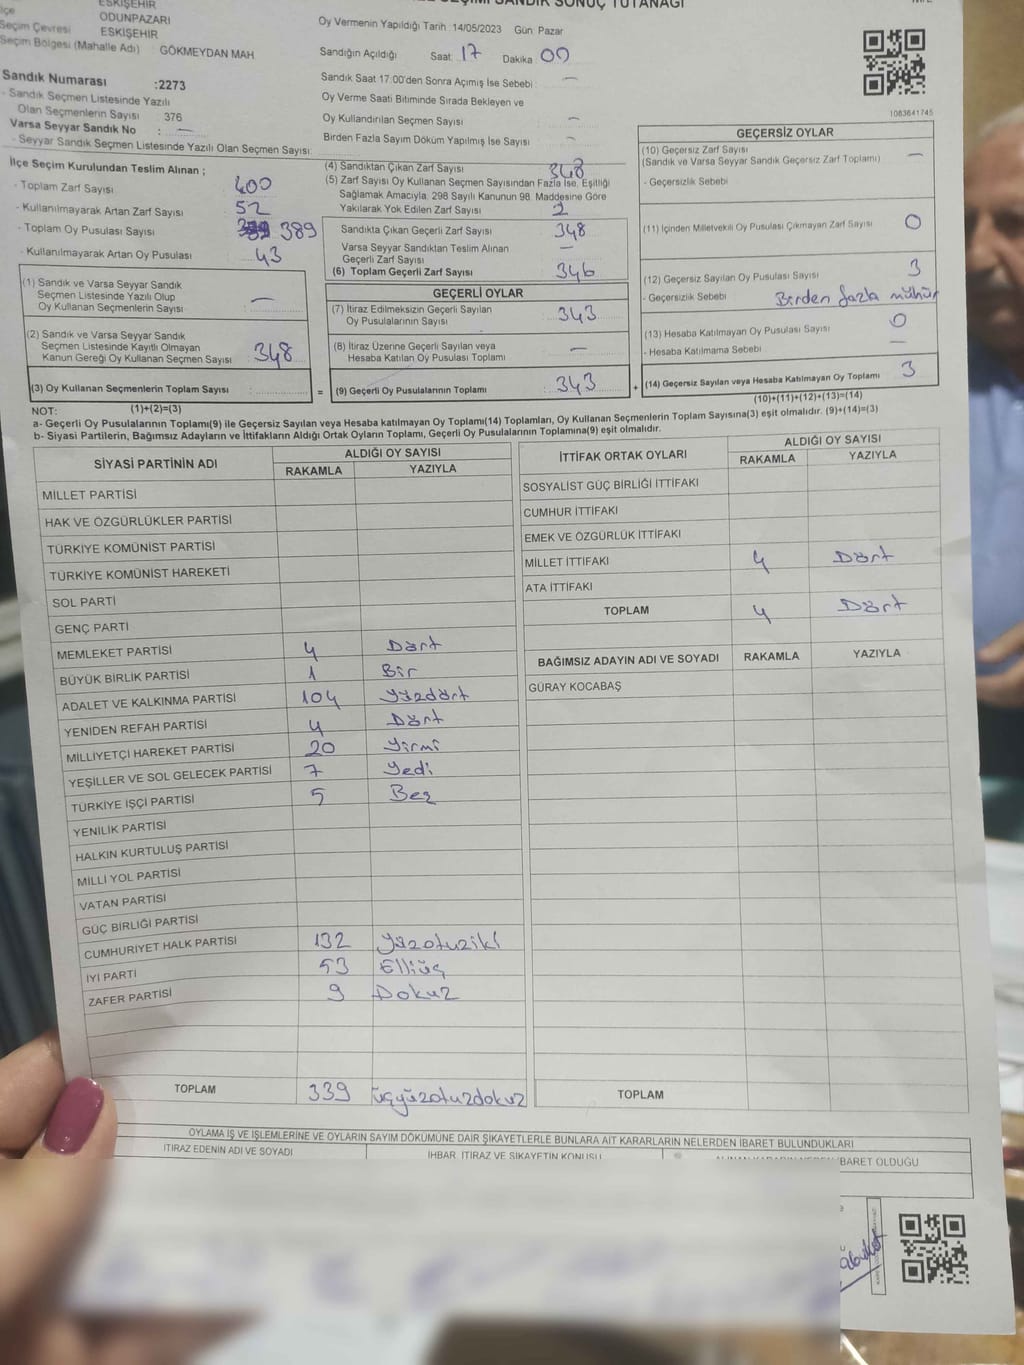 ESKİŞEHİR
ODUNPAZARI
Seçim Çevresi ESKİŞEHİR
Seçim Bölgesi (Mahalle Adı) GÖKMEYDAN MAH
SANDIK SONUÇ TUTANAĞI
Oy Vermenin Yapıldığı Tarih :14/05/2023 Gün: Pazar
Sandığın Açıldığı Saat: 17 Dakika 00
Sandık Saat 17:00'den Sonra Açımış İse Sebebi : —
Oy Verme Saati Bitiminde Sırada Bekleyen ve
Oy Kullandırılan Seçmen Sayısı : —
Birden Fazla Sayım Döküm Yapılmış İse Sayısı : —
Sandık Numarası :2273
- Sandık Seçmen Listesinde Yazılı
Olan Seçmenlerin Sayısı : 376
Varsa Seyyar Sandık No : —
- Seyyar Sandık Seçmen Listesinde Yazılı Olan Seçmen Sayısı:
1083641745
İlçe Seçim Kurulundan Teslim Alınan ;
- Toplam Zarf Sayısı 400
- Kullanılmayarak Artan Zarf Sayısı 52
- Toplam Oy Pusulası Sayısı 389
- Kullanılmayarak Artan Oy Pusulası : 43
(1) Sandık ve Varsa Seyyar Sandık
Seçmen Listesinde Yazılı Olup
Oy Kullanan Seçmen Sayısı : —
(2) Sandık ve Varsa Seyyar Sandık
Seçmen Listesinde Kayıtlı Olmayan
Kanun Gereği Oy Kullanan Seçmen Sayısı : 348
(3) Oy Kullanan Seçmenlerin Toplam Sayısı :
(4) Sandıktan Çıkan Zarf Sayısı 348
(5) Zarf Sayısı Oy Kullanan Seçmen Sayısından Fazla İse, Eşitliği
Sağlamak Amacıyla, 298 Sayılı Kanunun 98. Maddesine Göre
Yakılarak Yok Edilen Zarf Sayısı : 2
Sandıkta Çıkan Geçerli Zarf Sayısı : 348
Varsa Seyyar Sandıktan Teslim Alınan
Geçerli Zarf Sayısı : —
(6) Toplam Geçerli Zarf Sayısı : 346
GEÇERLİ OYLAR
(7) İtiraz Edilmeksizin Geçerli Sayılan
Oy Pusulalarının Sayısı : 343
(8) İtiraz Üzerine Geçerli Sayılan veya
Hesaba Katılan Oy Pusulası Toplamı : —
= (9) Geçerli Oy Pusulalarının Toplamı : 343 +
GEÇERSİZ OYLAR
(10) Geçersiz Zarf Sayısı
(Sandık ve Varsa Seyyar Sandık Geçersiz Zarf Toplamı) : —
- Geçersizlik Sebebi :
(11) İçinden Milletvekili Oy Pusulası Çıkmayan Zarf Sayısı : 0
(12) Geçersiz Sayılan Oy Pusulası Sayısı : 3
- Geçersizlik Sebebi : Birden fazla mühür
(13) Hesaba Katılmayan Oy Pusulası Sayısı : 0
- Hesaba Katılmama Sebebi : —
(14) Geçersiz Sayılan veya Hesaba Katılmayan Oy Toplamı : 3
NOT: (1)+(2)=(3)
(10)+(11)+(12)+(13)=(14)
a- Geçerli Oy Pusulalarının Toplamı(9) ile Geçersiz Sayılan veya Hesaba katılmayan Oy Toplamı(14) Toplamları, Oy Kullanan Seçmenlerin Toplam Sayısına(3) eşit olmalıdır. (9)+(14)=(3)
b- Siyasi Partilerin, Bağımsız Adayların ve İttifakların Aldığı Ortak Oyların Toplamı, Geçerli Oy Pusulalarının Toplamına(9) eşit olmalıdır.
SİYASİ PARTİNİN ADI
ALDIĞI OY SAYISI
RAKAMLA YAZIYLA
MİLLET PARTİSİ
HAK VE ÖZGÜRLÜKLER PARTİSİ
TÜRKİYE KOMÜNİST PARTİSİ
TÜRKİYE KOMÜNİST HAREKETİ
SOL PARTİ
GENÇ PARTİ
MEMLEKET PARTİSİ 4 Dört
BÜYÜK BİRLİK PARTİSİ 1 Bir
ADALET VE KALKINMA PARTİSİ 104 Yüzdört
YENİDEN REFAH PARTİSİ 4 Dört
MİLLİYETÇİ HAREKET PARTİSİ 20 Yirmi
YEŞİLLER VE SOL GELECEK PARTİSİ 7 Yedi
TÜRKİYE İŞÇİ PARTİSİ 5 Beş
YENİLİK PARTİSİ
HALKIN KURTULUŞ PARTİSİ
MİLLİ YOL PARTİSİ
VATAN PARTİSİ
GÜÇ BİRLİĞİ PARTİSİ
CUMHURİYET HALK PARTİSİ 132 Yüzotuziki
İYİ PARTİ 53 Elliüç
ZAFER PARTİSİ 9 Dokuz
TOPLAM 339 üçyüzotuzdokuz
İTTİFAK ORTAK OYLARI
ALDIĞI OY SAYISI
RAKAMLA YAZIYLA
SOSYALİST GÜÇ BİRLİĞİ İTTİFAKI
CUMHUR İTTİFAKI
EMEK VE ÖZGÜRLÜK İTTİFAKI
MİLLET İTTİFAKI 4 Dört
ATA İTTİFAKI
TOPLAM 4 Dört
BAĞIMSIZ ADAYIN ADI VE SOYADI RAKAMLA YAZIYLA
GÜRAY KOCABAŞ
TOPLAM
OYLAMA İŞ VE İŞLEMLERİNE VE OYLARIN SAYIM DÖKÜMÜNE DAİR ŞİKAYETLERLE BUNLARA AİT KARARLARIN NELERDEN İBARET BULUNDUKLARI
İTİRAZ EDENİN ADI VE SOYADI
İHBAR, İTİRAZ VE ŞİKAYETİN KONUSU
İBARET OLDUĞU